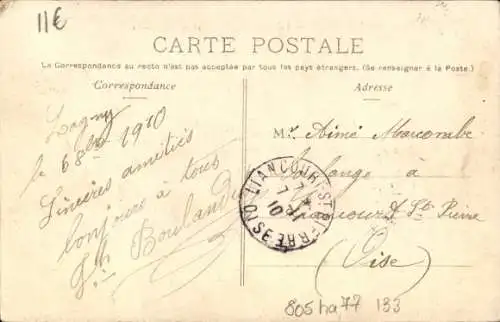 11€
CARTE POSTALE
La Correspondance au recto n'est pas acceptée par tous les pays étrangers. (Se renseigner à la Poste.)
Correspondance
Lagny
le 6 8bre 1910
Sincères amitiés
bonjours à tous
Bouland
Adresse
Mr Aimé Marcorabe
à
Liancourt St Pierre
(Oise)
LIANCOURT-ST-PIERRE OISE
7
10
805 ha,77 133